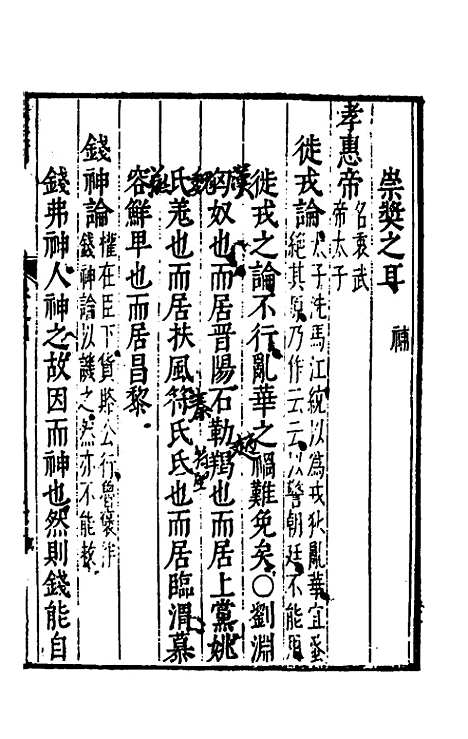 崇獎之耳 補
孝惠帝 名衷武帝太子
徙戎論 太子洗馬江統以爲戎狄亂華宜蚤絕其原乃作云云以警朝廷不能用
徙戎之論不行亂華之禍難免矣○劉淵
匈奴也而居晉陽石勒羯也而居上黨姚
氏羌也而居扶風符氏氐也而居臨渭慕
容鮮卑也而居昌黎
錢神論 權在臣下貨賂公行魯褒作錢神論以譏之然亦不能救
錢弗神人神之故因而神也然則錢能自
漢
趙
秦